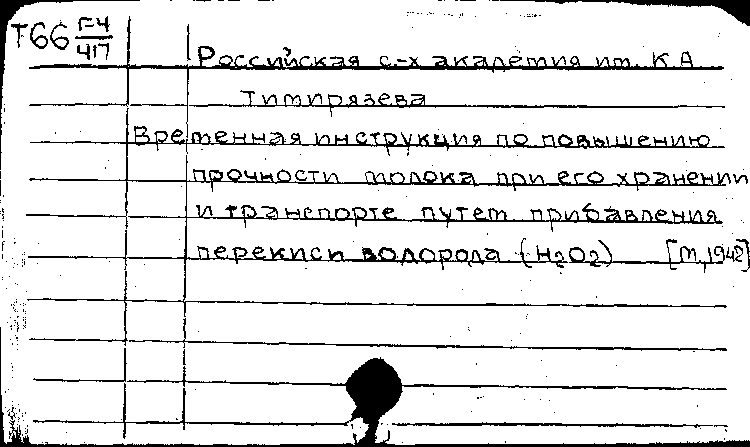 Т66 Г-4
417
Российская с-х академия им. К.А
Тимирязева
Временная инструкция по повышению
прочности молока при его хранении
и транспорте путем прибавления
перекиси водорода (H2O2) [М, 1942]